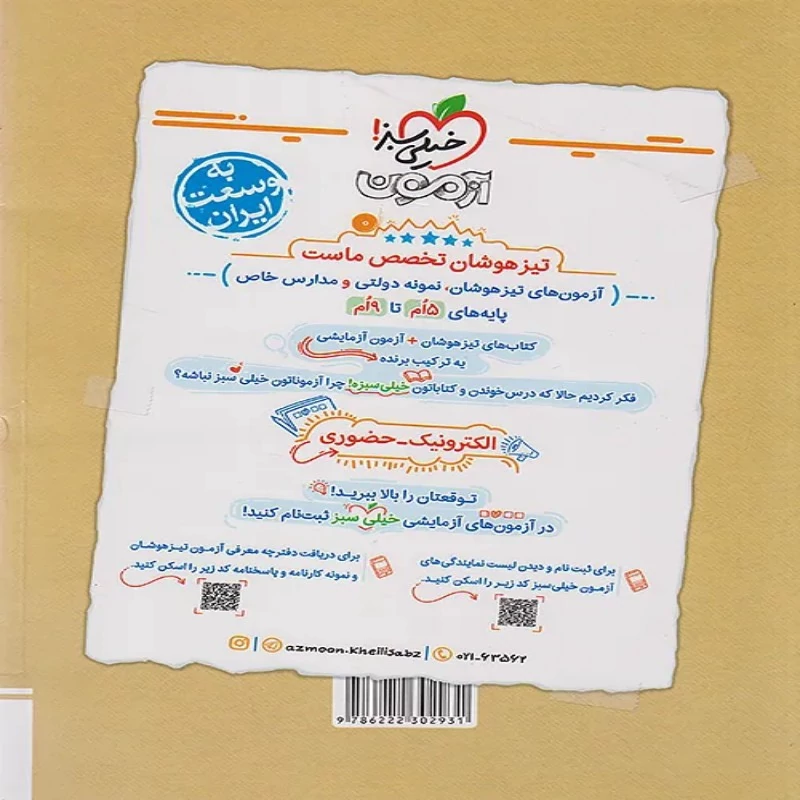 خیلی سبز!
آزمون
به
وسعت
ایران
تیزهوشان تخصص ماست
(آزمون‌های تیزهوشان، نمونه دولتی و مدارس خاص)
پایه‌های ۵اُم تا ۹اُم
کتاب‌های تیزهوشان + آزمون آزمایشی
یه ترکیب برنده
فکر کردیم حالا که درس‌خوندن و کتاباتون خیلی‌سبزه! چرا آزموناتون خیلی سبز نباشه؟
الکترونیک-حضوری
توقعتان را بالا ببرید!
در آزمون‌های آزمایشی خیلی سبز ثبت‌نام کنید!
برای ثبت نام و دیدن لیست نمایندگی‌های
آزمون خیلی‌سبز کد زیر را اسکن کنید.
برای دریافت دفترچه معرفی آزمون تیزهوشان
و نمونه کارنامه و پاسخنامه کد زیر را اسکن کنید.
azmoon.kheilisabz | ۰۲۱-۶۳۵۶۲
9 786222 302931